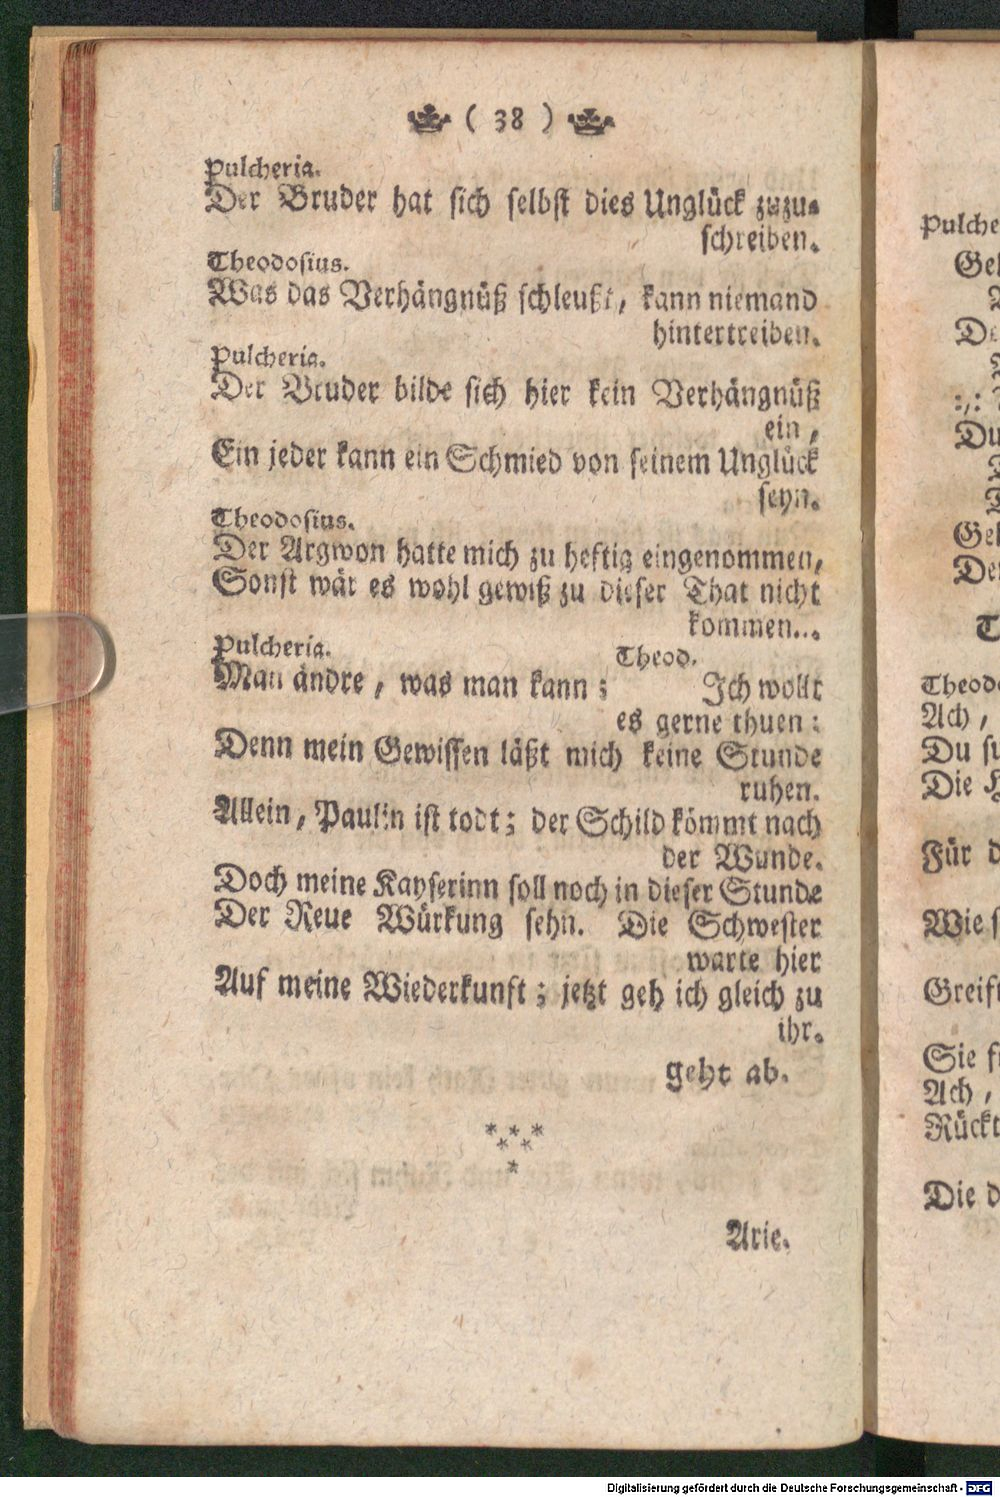 ( 38 )
Pulcheria.
Der Bruder hat sich selbst dies Unglück zuzu-
schreiben.
Theodosius.
Was das Verhängnüß schleußt, kann niemand
hintertreiben.
Pulcheria.
Der Bruder bilde sich hier kein Verhängnüß
ein,
Ein jeder kann ein Schmied von seinem Unglück
seyn.
Theodosius.
Der Argwon hatte mich zu heftig eingenommen,
Sonst wär es wohl gewiß zu dieser That nicht
kommen...
Pulcheria. Theod.
Man ändre, was man kann; Ich wollt
es gerne thuen:
Denn mein Gewissen läßt mich keine Stunde
ruhen.
Allein, Paulin ist todt; der Schild kömmt nach
der Wunde.
Doch meine Kayserinn soll noch in dieser Stunde
Der Reue Würkung sehn. Die Schwester
warte hier
Auf meine Wiederkunft; jetzt geh ich gleich zu
ihr.
geht ab.
* * *
* *
*
Arie.
Pulche
Gel
De
:,:
Du
Gel
De
T
Theodo
Ach,
Du su
Die H
Für d
Wie s
Greift
Sie f
Ach,
Rückt
Die d
Digitalisierung gefördert durch die Deutsche Forschungsgemeinschaft - DFG